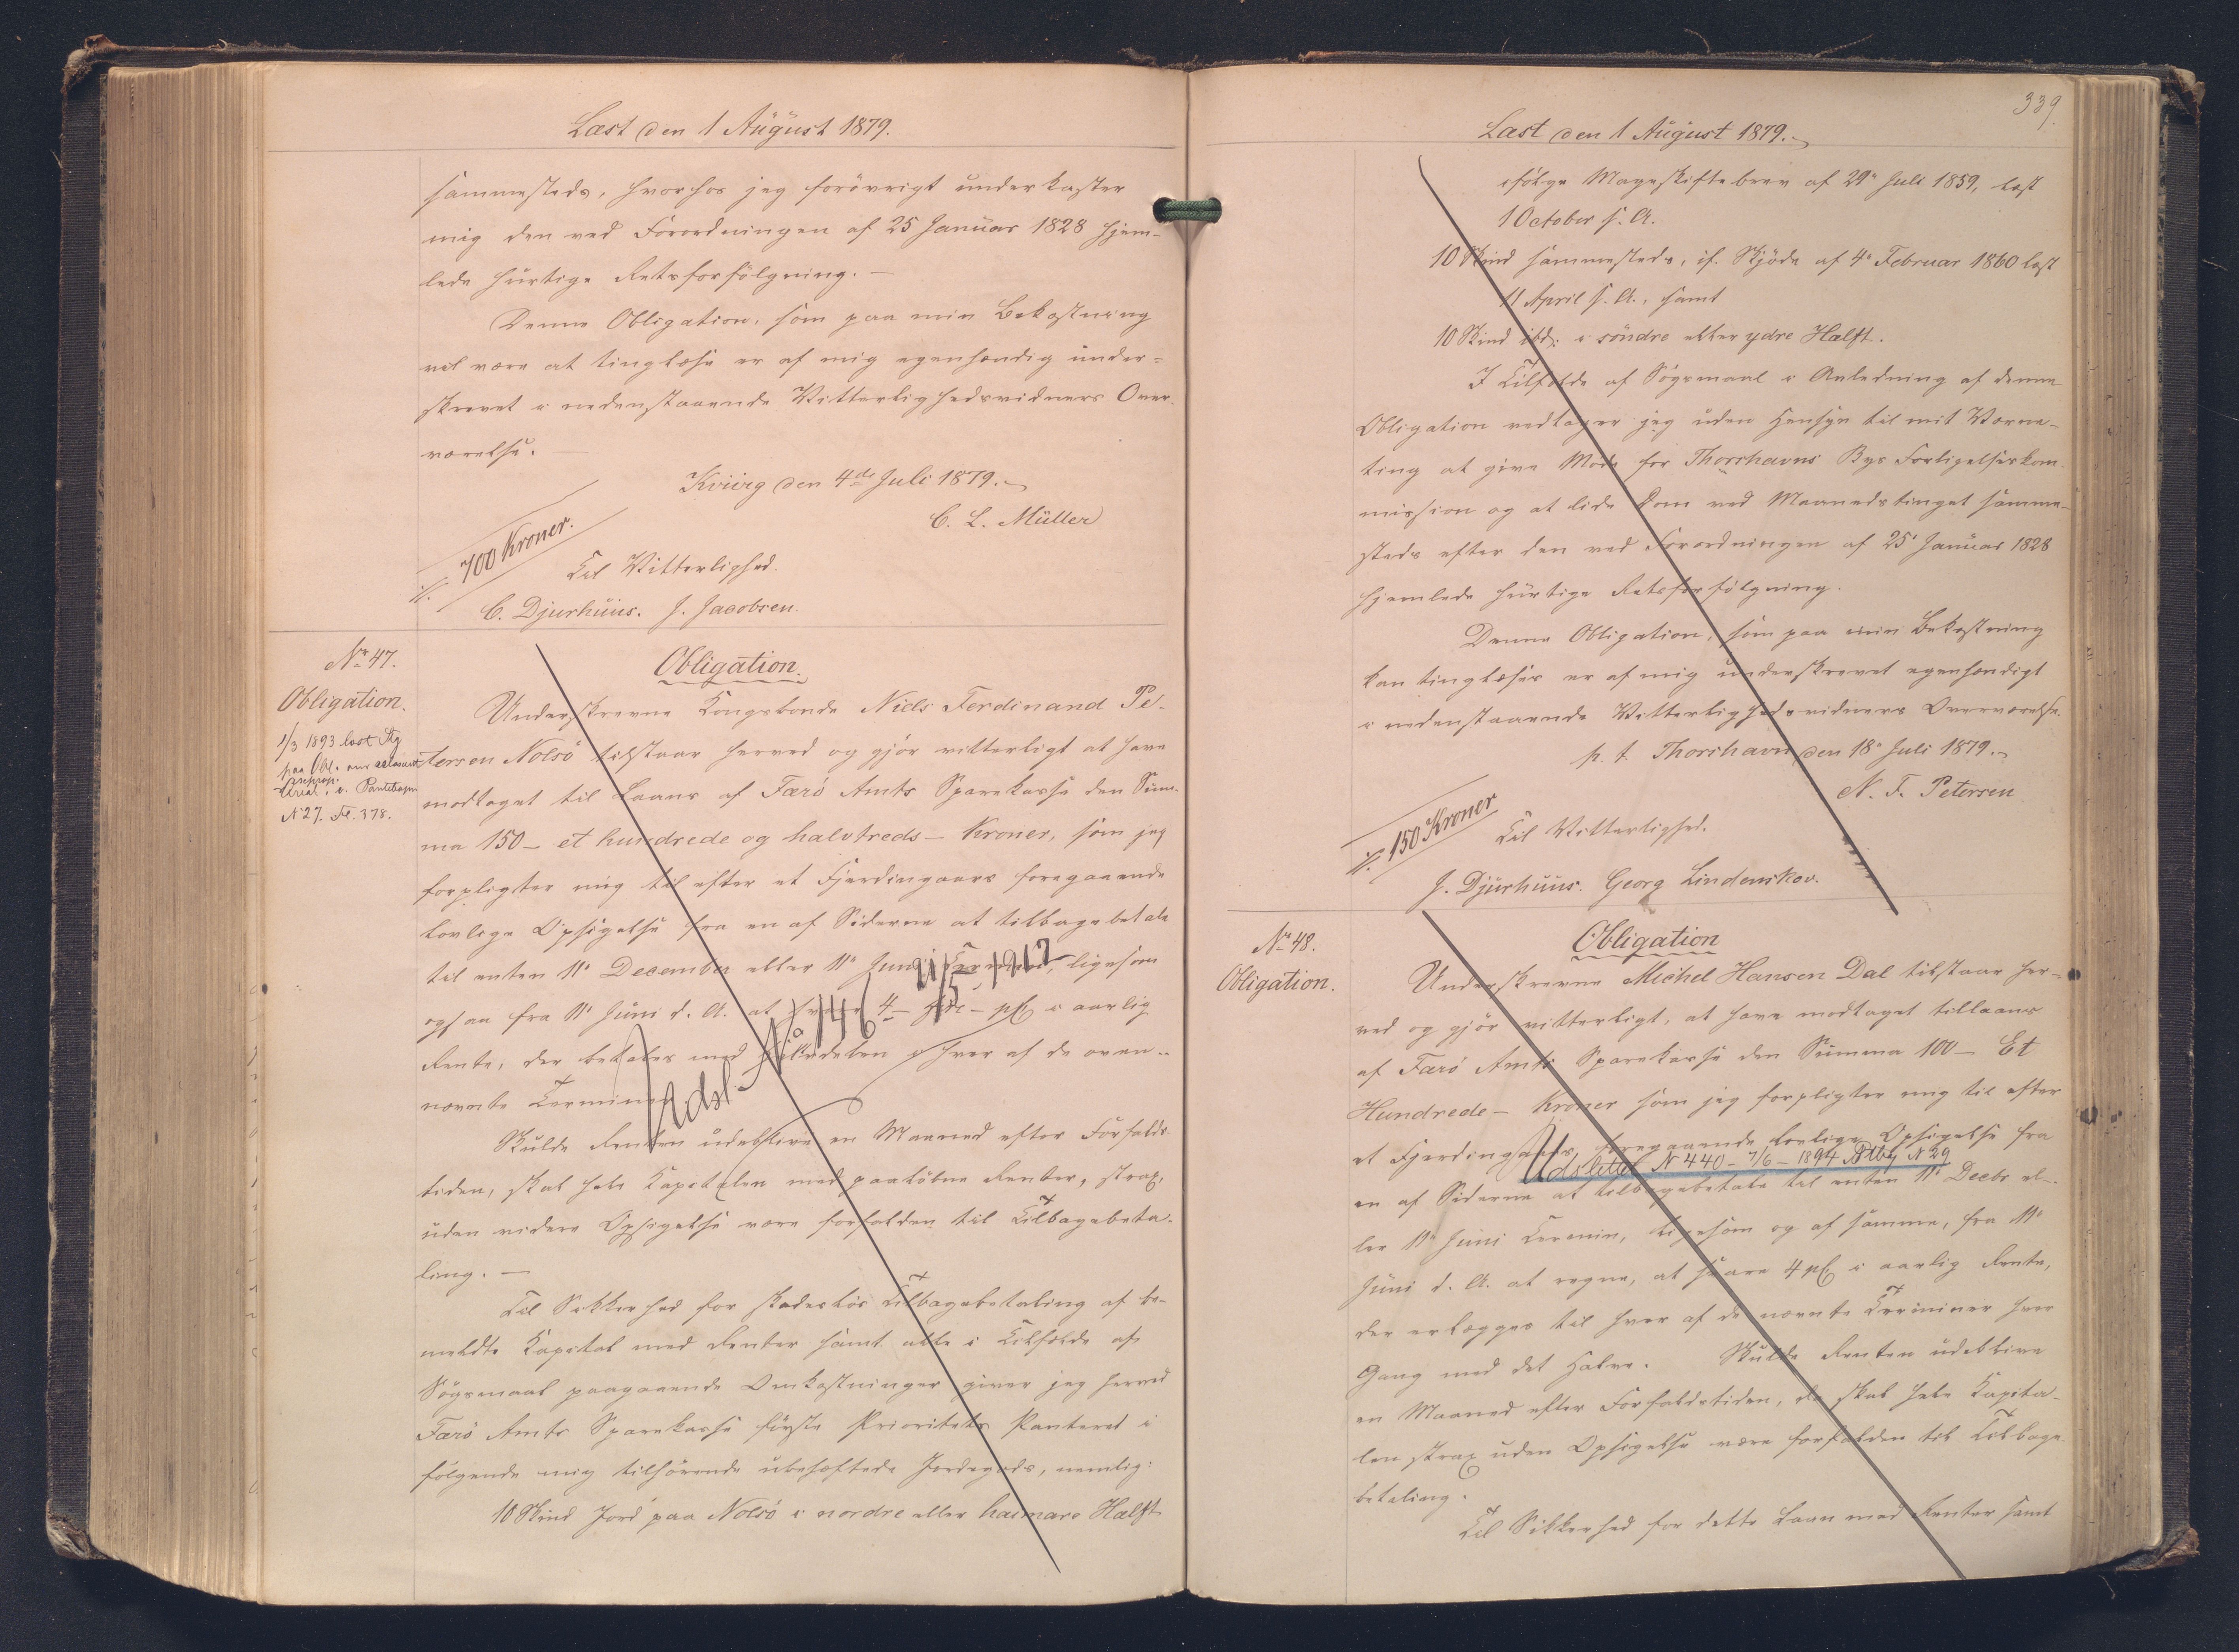 Læst den 1 August 1879.
sammesteds, hvorhos jeg forövrigt underkaster
mig den ved Forordningen af 25 Januar 1828 hjem-
lede hurtige Retsforfölgning. —
Denne Obligation, som paa min Bekostning
vil være at tinglæse er af mig egenhændig under-
skrevet i nedenstaaende Vitterlighedsvidners Over-
værelse. —
Kvivig den 4de Juli 1879.
C. L. Müller
700 Kroner.
Til Vitterlighed.
C. Djurhuus. J. Jacobsen.
No 47.
Obligation.
1/3 1893 læst
paa Obl.
Areal, i. Pantebogen
N 27. Fo. 378.
Obligation.
Underskrevne Kongsbonde Niels Ferdinand Pe-
tersen Nolsö tilstaar herved og gjör vitterligt at have
modtaget til Laans af Færö Amts Sparekasse den Sum-
ma 150 — et hundrede og halvtreds — Kroner, som jeg
forpligter mig til efter et Fjerdingaars foregaaende
lovlige Opsigelse fra en af Siderne at tilbagebetale
til enten 11e December eller 11e Juni Termin, ligesom
ogsaa fra 11e Juni d. A. at svare 4 — fire — pCt i aarlig
Rente, der betales med Halvdelen i hver af de oven-
nævnte Terminer.
Udsl. No 146 21/5 1912
Skulde Renten udeblive en Maaned efter Forfalds-
tiden, skal hele Kapitalen med paalöbne Renter, strax,
uden videre Opsigelse være forfalden til Tilbagebeta-
ling. —
Til Sikkerhed for skadeslös Tilbagebetaling af be-
meldte Kapital med Renter samt alle i Tilfælde af
Sögsmaal paagaaende Omkostninger giver jeg herved
Færö Amts Sparekasse förste Prioritets Panteret i
fölgende mig tilhörende ubehæftede Jordegods, nemlig:
10 Skind Jord paa Nolsö i nordre eller haimare Halft
339.
Læst den 1 August 1879.
ifölge Mageskiftebrev af 29e Juli 1859, læst
1 October s. A.
10 Skind sammesteds, if. Skjöde af 4e Februar 1860 læst
11 April s. A., samt
10 Skind ibd: i söndre eller ydre Halft.
I Tilfælde af Sögsmaal i Anledning af denne
Obligation vedtager jeg uden Hensyn til mit Værne-
ting at give Möde for Thorshavns Bys Forligelseskom-
mission og at lide Dom ved Maanedstinget samme-
steds efter den ved Forordningen af 25e Januar 1828
hjemlede hurtige Retsforfölgning.
Denne Obligation, som paa min Bekostning
kan tinglæses er af mig underskrevet egenhændigt
i nedenstaaende Vitterlighedsvidners Overværelse.
p. t. Thorshavn, den 18e Juli 1879.
N. F. Petersen
150 Kroner
Til Vitterlighed.
J. Djurhuus. Georg Lindenskov.
No 48.
Obligation.
Obligation
Underskrevne Michel Hansen Dal tilstaar her-
ved og gjör vitterligt, at have modtaget tillaans
af Færö Amts Sparekasse den Summa 100 — Et
Hundrede — Kroner som jeg forpligter mig til efter
et Fjerdingaars, foregaaende lovlige Opsigelse fra
Udslettet N 440 - 7/6 - 1894 N 29
en af Siderne at tilbagebetale til enten 11e Decbr el-
ler 11e Juni Termin, ligesom og af samme, fra 11e
Juni d. A. at regne, at svare 4 pCt i aarlig Rente,
der erlægges til hver af de nævnte Terminer hver
Gang med det Halve. Skulde Renten udeblive
en Maaned efter Forfaldstiden, da skal hele Kapita-
len strax uden Opsigelse være forfalden til Tilbage-
betaling.
Til Sikkerhed for dette Laan med Renter samt